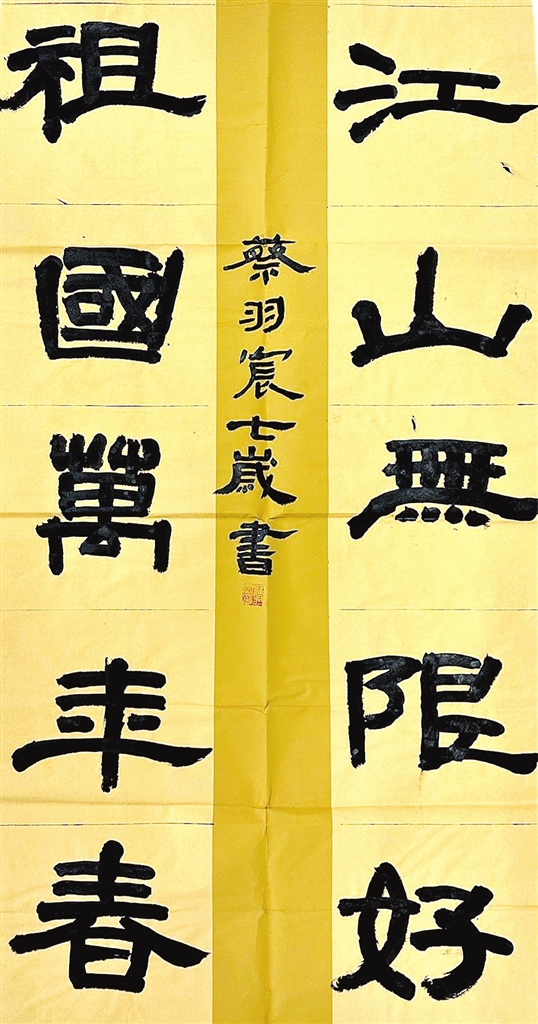 江山無限好
祖國萬年春
蔡羽宸七歲書